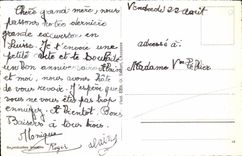 Chère grand mère, nous
passons notre dernière
grande excursion en
Suisse. Je t'envoie une
petite
bon anniversaire. Alain
et moi, nous avons hâte
de vous revoir. J'espère que
vous ne vous êtes pas trop
ennuyés. A bientôt. Bons
Baisers à tous trois.
Monique
Roger
Alain
Vendredi 22 août
adressée à:
Madame Vve